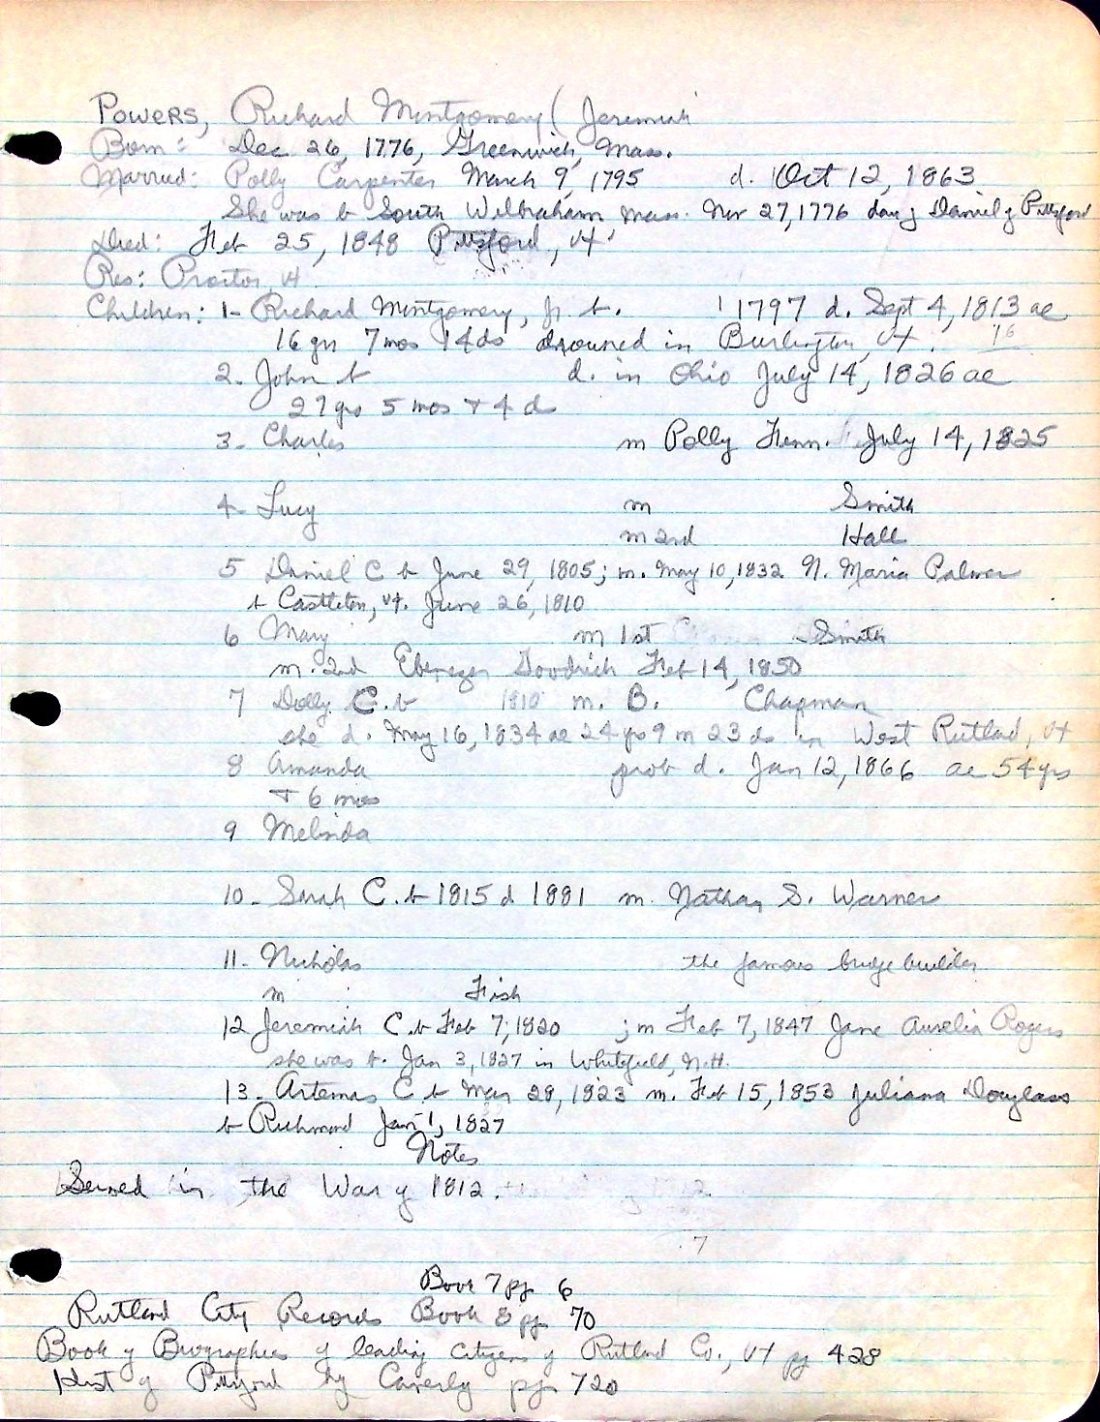 POWERS, Richard Montgomery (Jeremiah
Born: Dec 26, 1776, Greenwich, Mass.
Married: Polly Carpenter March 9, 1795 d. Oct 12, 1863
She was b South Wilbraham Mass. Nov 27, 1776 dau of Daniel of Pittsford
Died: Feb 25, 1848 Pittsford, Vt
Res: Proctor, Vt
Children: 1- Richard Montgomery, Jr. b. 1797 d. Sept 4, 1813 ae
16 yrs 7 mos 14 ds drowned in Burlington, Vt. 16
2. John b d. in Ohio July 14, 1826 ae
27 yrs 5 mos + 4 ds
3- Charles m Polly Fenn. July 14, 1825
4- Lucy m Smith
m 2nd Hall
5 Daniel C b June 29, 1805; m. May 10, 1832 N. Maria Palmer
b Castleton, Vt. June 26, 1810
6 Mary m 1st Smith
m. 2nd Ebenezer Goodrich Feb 14, 1850
7 Dolly C. b 1810 m. B. Chapman
she d. May 16, 1834 ae 24 yrs 9 m 23 ds in West Rutland, Vt
8 Amanda prob d. Jan 12, 1866 ae 54 yrs
+ 6 mos
9 Melinda
10- Sarah C. b 1815 d 1881 m. Nathan S. Warner
11- Nicholas the famous bridge builder
m Fish
12 Jeremiah C b Feb 7, 1820 ; m Feb 7, 1847 Jane Aurelia Rogers
she was b. Jan 3, 1827 in Whitefield, N.H.
13- Artemas C b Mar 28, 1823 m. Feb 15, 1853 Juliana Douglass
b Richmond Jan 1, 1827
Notes
Served in the War of 1812.
7
Book 7 pg 6
Rutland City Records Book 8 pg 70
Book of Biographies of leading citizens of Rutland Co., Vt pg 428
Hist of Pittsford by Caverly pg 720